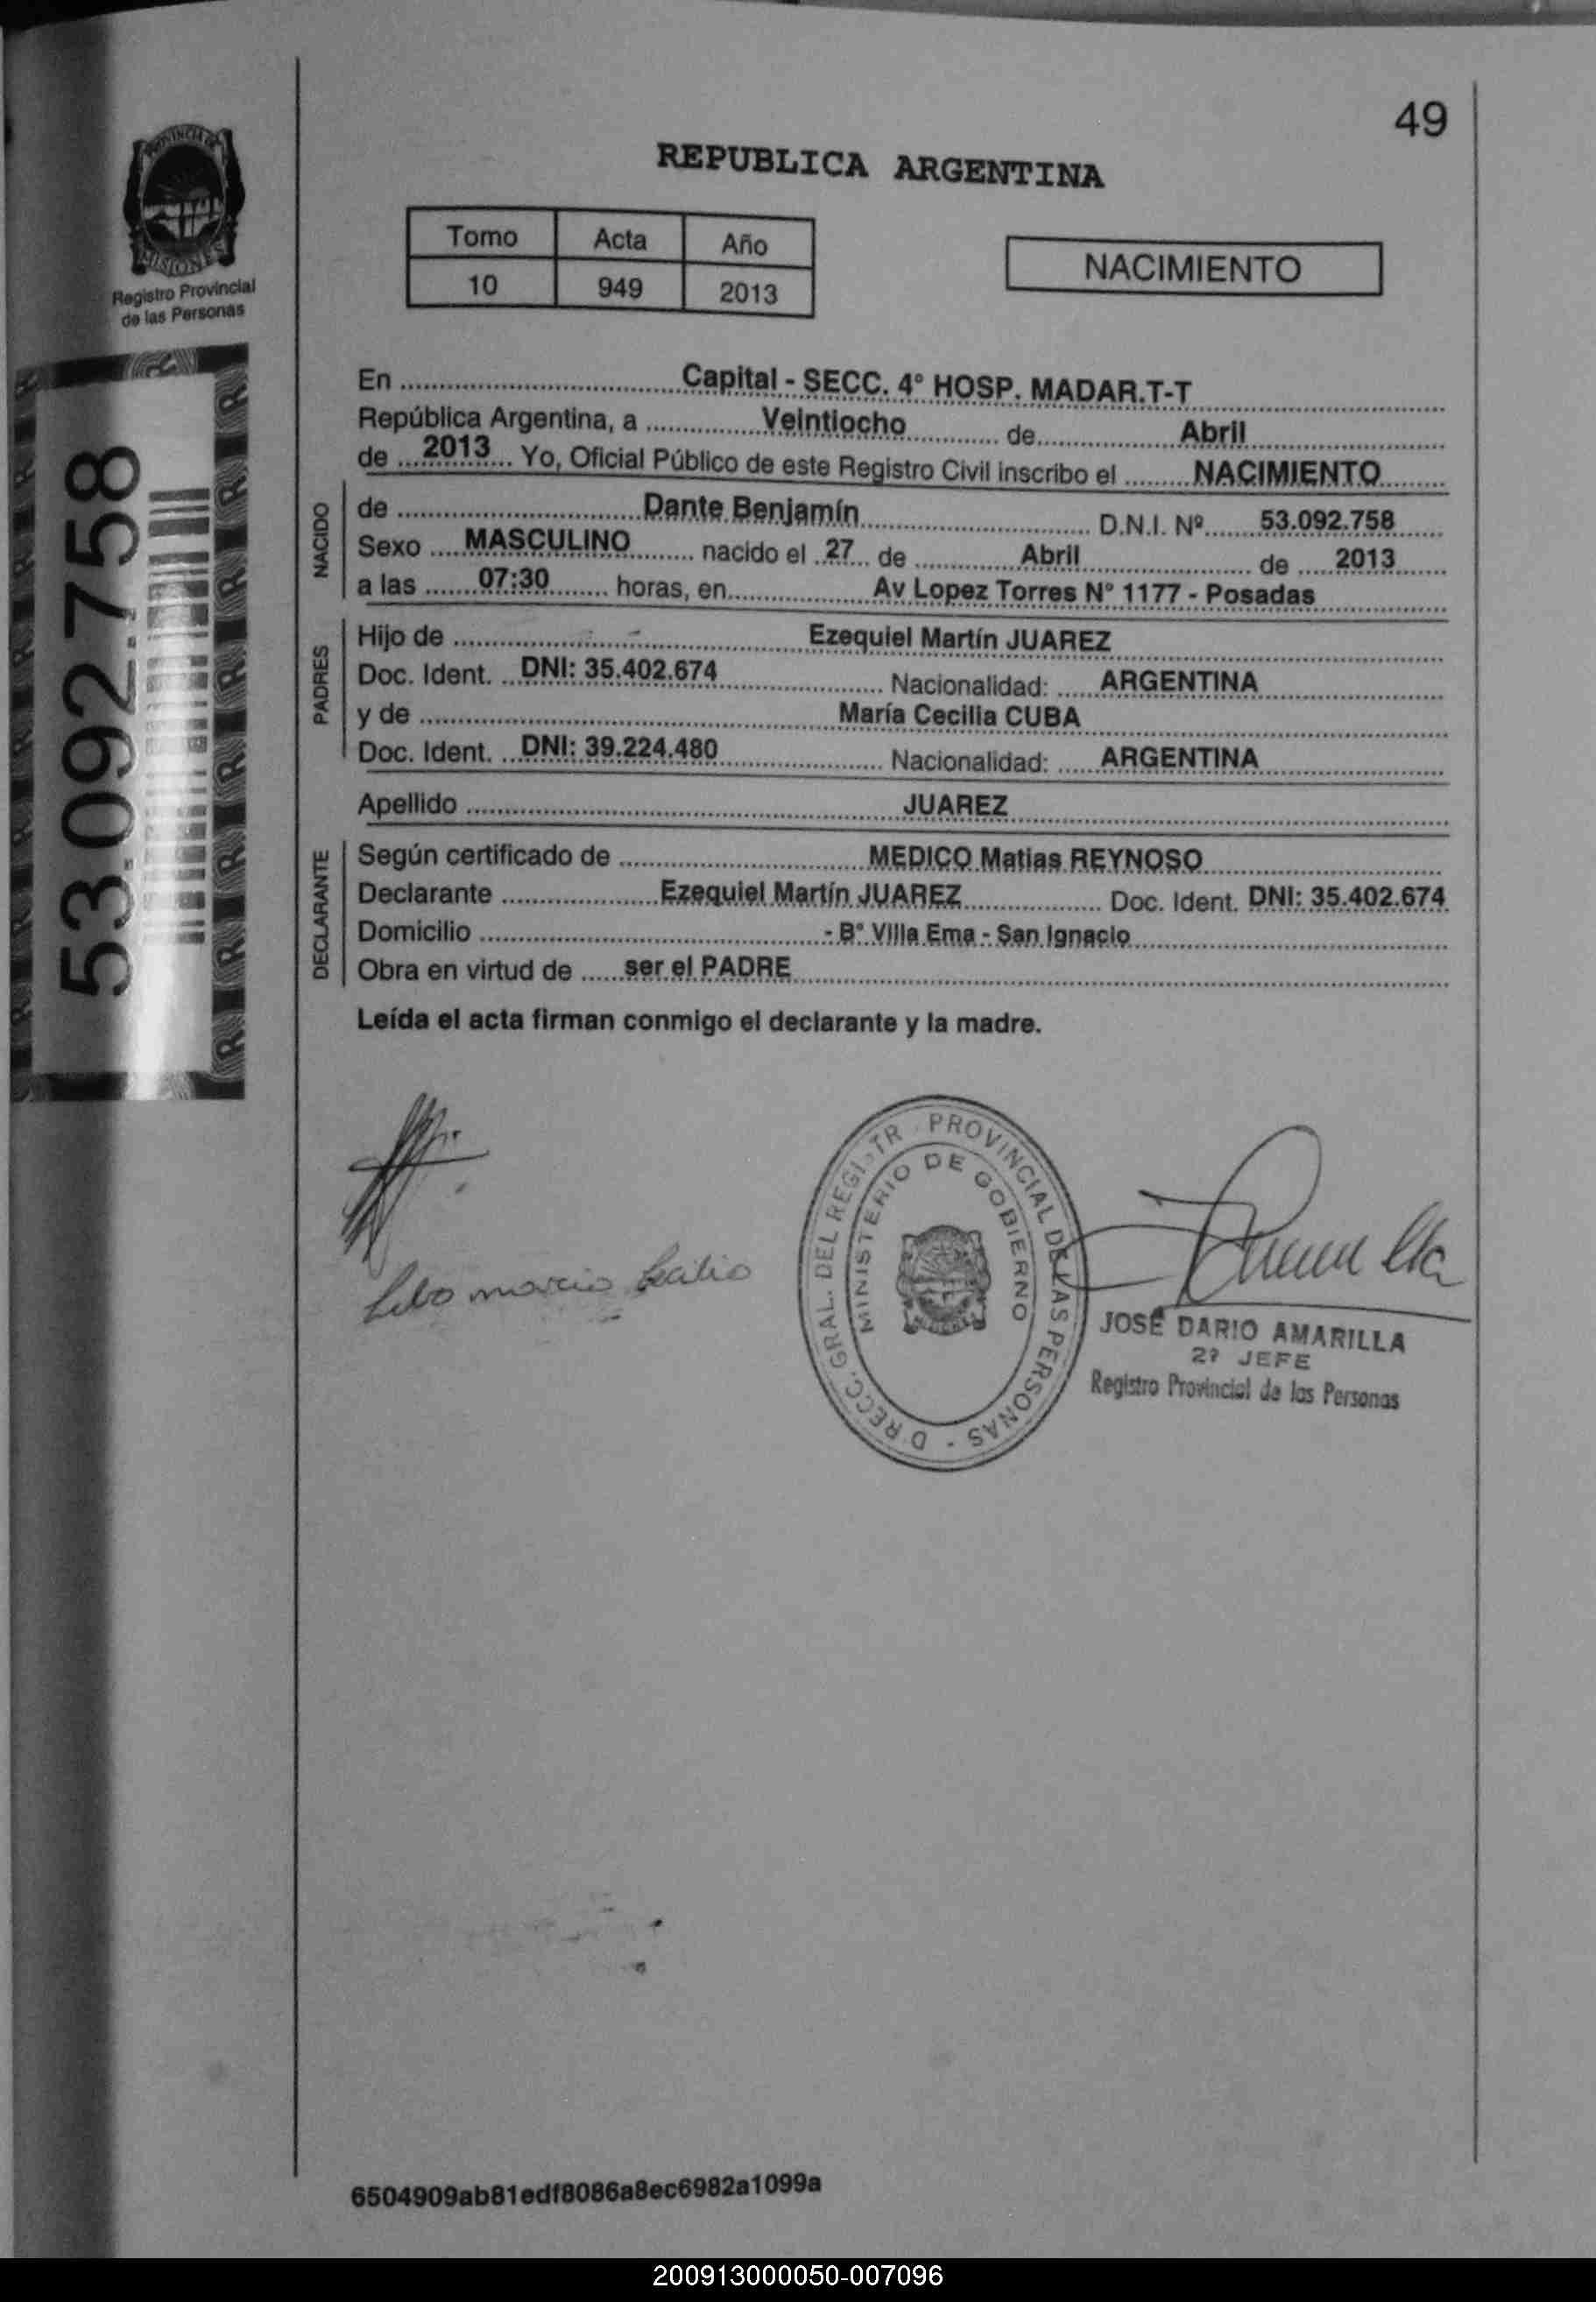 49
PROVINCIA DE
MISIONES
Registro Provincial
de las Personas
53.092.758
REPUBLICA ARGENTINA
Tomo Acta Año
10 949 2013
NACIMIENTO
En Capital - SECC. 4° HOSP. MADAR.T-T
República Argentina, a Veintiocho de Abril
de 2013 Yo, Oficial Público de este Registro Civil inscribo el NACIMIENTO
NACIDO
de Dante Benjamín D.N.I. Nº 53.092.758
Sexo MASCULINO nacido el 27 de Abril de 2013
a las 07:30 horas, en Av Lopez Torres N° 1177 - Posadas
PADRES
Hijo de Ezequiel Martín JUAREZ
Doc. Ident. DNI: 35.402.674 Nacionalidad: ARGENTINA
y de María Cecilia CUBA
Doc. Ident. DNI: 39.224.480 Nacionalidad: ARGENTINA
Apellido JUAREZ
DECLARANTE
Según certificado de MEDICO Matias REYNOSO
Declarante Ezequiel Martín JUAREZ Doc. Ident. DNI: 35.402.674
Domicilio - B° Villa Ema - San Ignacio
Obra en virtud de ser el PADRE
Leída el acta firman conmigo el declarante y la madre.
PROVINCIAL DE LAS PERSONAS
MINISTERIO DE GOBIERNO
JOSÉ DARIO AMARILLA
2º JEFE
Registro Provincial de las Personas
6504909ab81edf8086a8ec6982a1099a
200913000050-007096